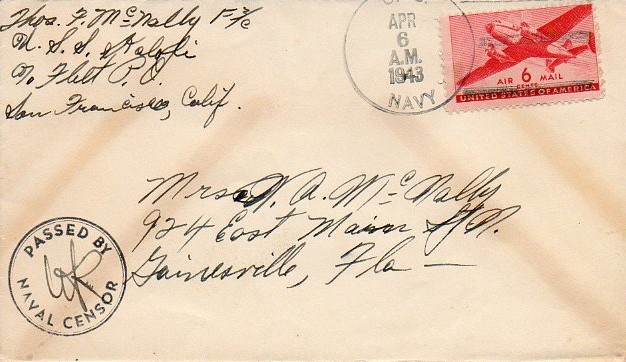 Thos. F. McNally F 2/c
U. S. S. Kaloli
c/o Fleet P. O.
San Francisco, Calif.
APR
6
A.M.
1943
NAVY
AIR 6 MAIL
CENTS
UNITED STATES OF AMERICA
Mrs. W. A. McNally
924 East Main St. N.
Gainesville, Fla —
PASSED BY
NAVAL CENSOR